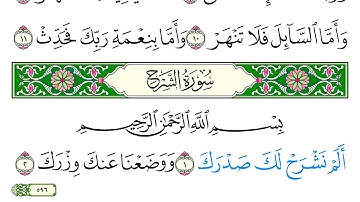 وَأَمَّا ٱلسَّآئِلَ فَلَا تَنْهَرْ ١٠ وَأَمَّا بِنِعْمَةِ رَبِّكَ فَحَدِّثْ ١١
سُورَةُ الشَّرْحِ
بِسْمِ ٱللَّهِ ٱلرَّحْمَٰنِ ٱلرَّحِيمِ
أَلَمْ نَشْرَحْ لَكَ صَدْرَكَ ١ وَوَضَعْنَا عَنكَ وِزْرَكَ ٢
٥٩٦